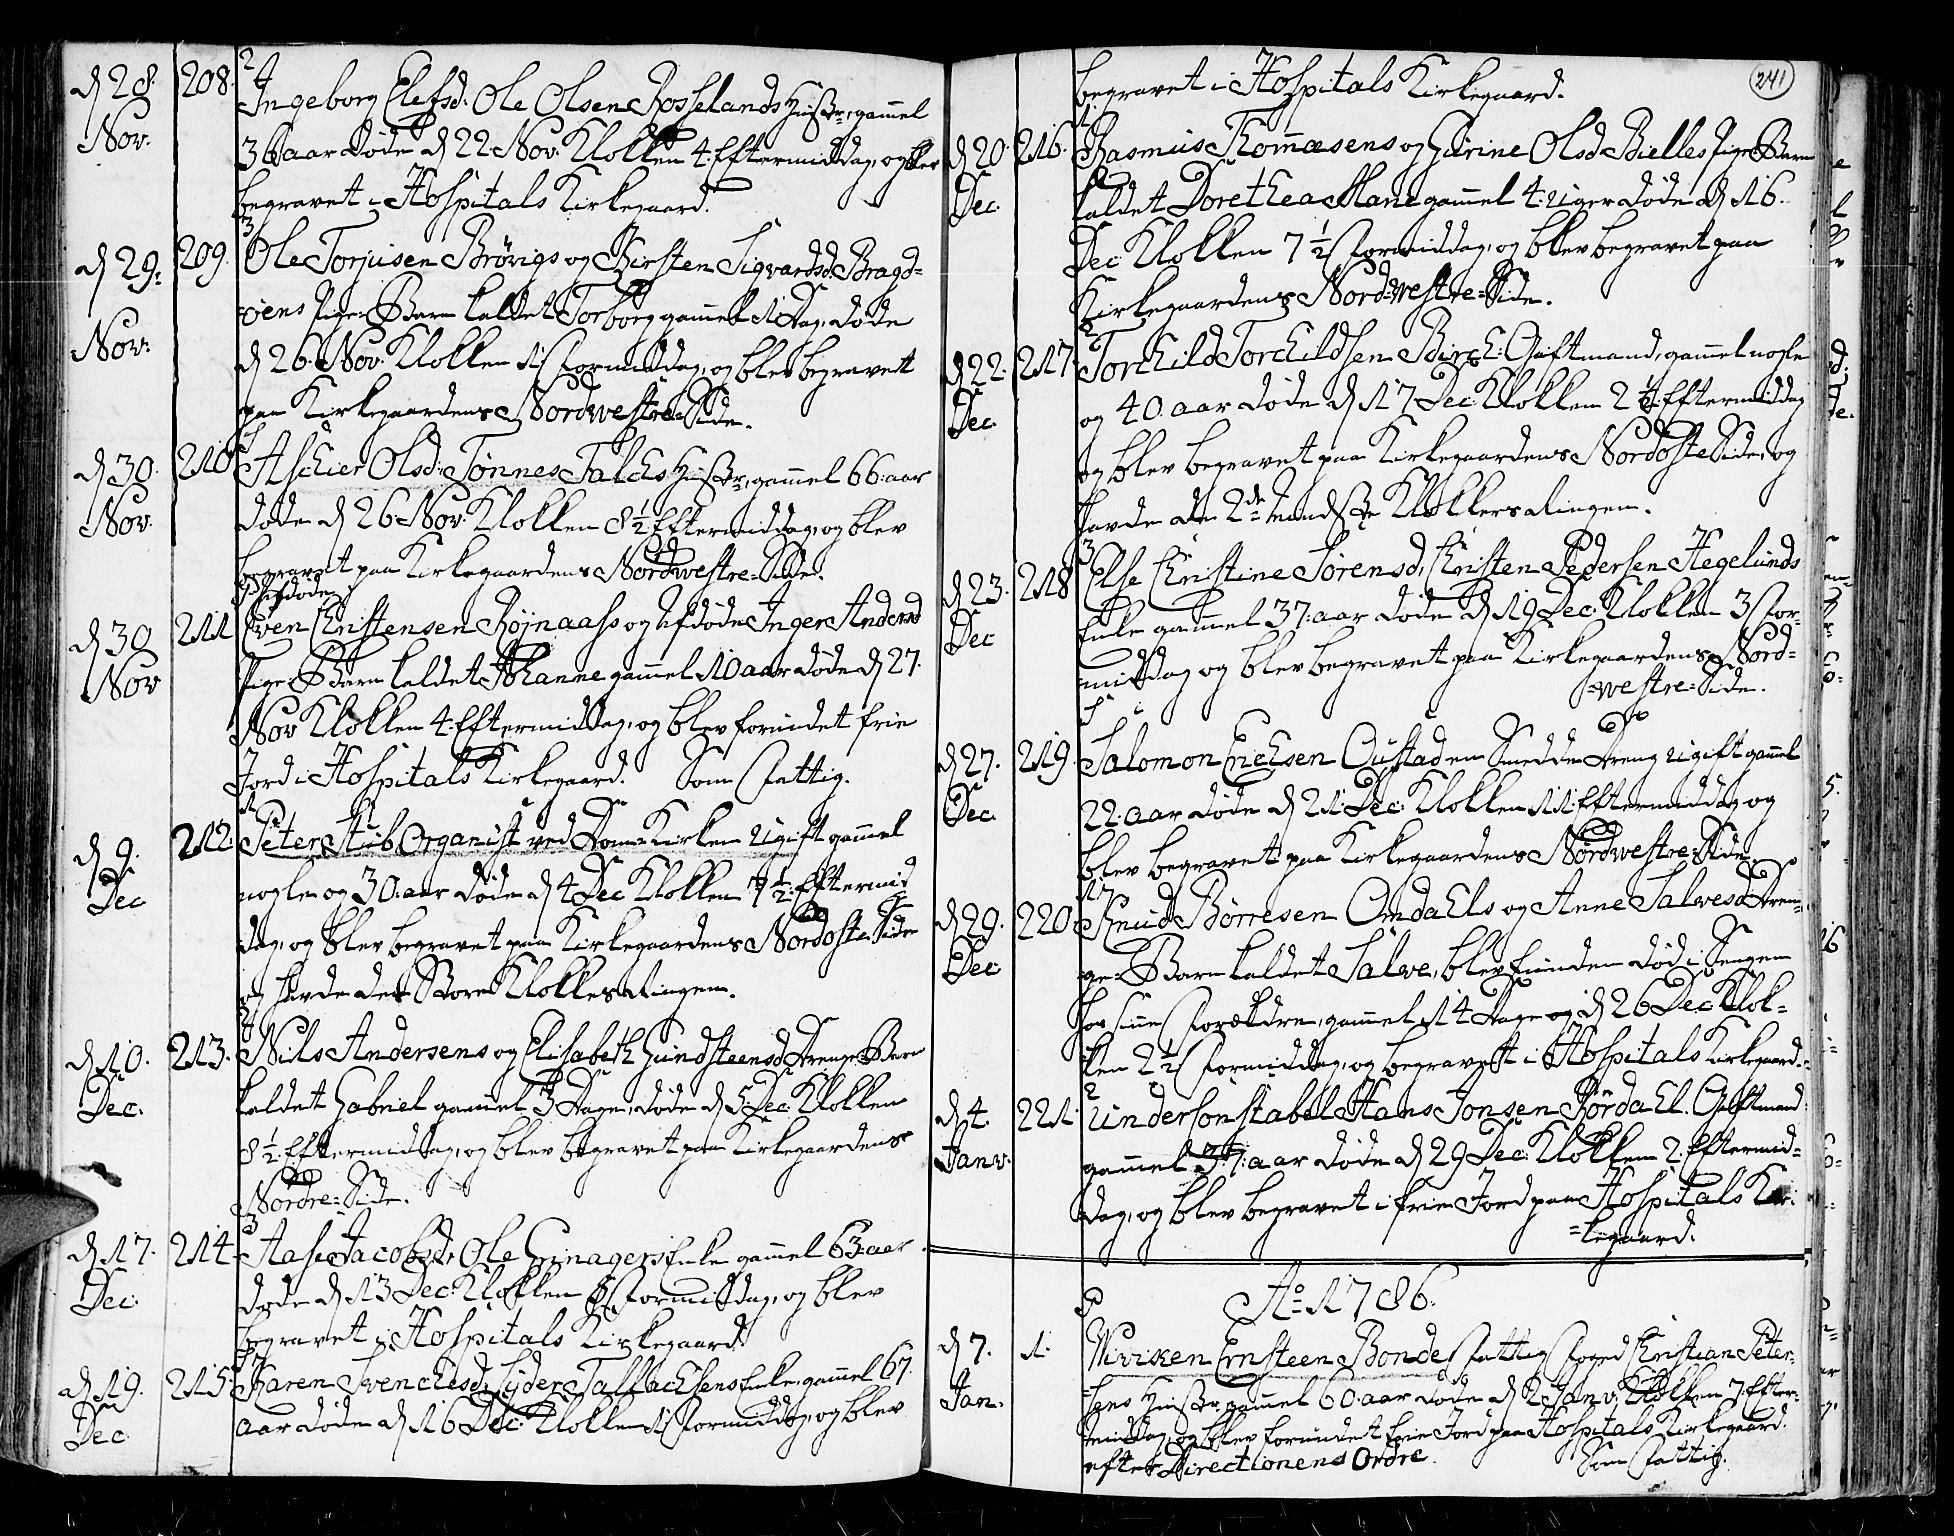 d 28. Nov. 208. 2
Ingeborg Elefsd: Ole Olsen Rosselands Hustr: gammel
36 aar døde d 22 Nov. Klokken 4. Eftermiddag, og blev
begravet i Hospitals Kirkegaard.
d 29. Nov. 209. 3
Ole Torjusen Brövigs og Kirsten Sigvardsd Bragd=
=øens Pige=Barn kaldet Torborg gammel 1 Dag, døde
d 26. Nov. Klokken 1. Formiddag, og blev begravet
paa Kirkegaardens Nordwestre=Side.
d 30. Nov. 210.
Aschier Olsd: Tönnes Falchs Hustr:, gammel 66. aar
døde d 26. Nov. Klokken 8 1/2 Eftermiddag, og blev
begravet paa Kirkegaardens Nordwestre=Side.
d 30 Nov 211 afdøde
Even Christensen Röjnaass og Afdøde Inger Andersd
Pige Barn kaldet Johanne gammel 10 aar døde d 27.
Nov Klokken 4. Eftermiddag, og blev forundet frie
Jord i Hospitals Kirkegaard. Som Fattig.
d 9. Dec 212. 1
Peter Stub Organist ved Dom=Kirken ugift gammel
nogle og 30. aar døde d 4 Dec Klokken 7 1/2. Eftermid
dag, og blev begravet paa Kirkegaardens Nordoste Side
og havde den Store Klokkes Ringen.
d 10. Dec. 213. 2
Nils Andersens og Elisabeth Gundsteensd Drenge=Barn
kaldet Gabriel gammel 3 Dage, døde d 5. Dec. Klokken
8 1/2 Eftermiddag, og blev begravet paa Kirkegaardens
Nordre=Side.
d 17. Dec. 214. 3
Aase Jacobsd: Ole Ginagers Enke gammel 63. aar
døde d 13 Dec. Klokken 8 Formiddag, og blev
begravet i Hospitals Kirkegaard.
d 19. Dec. 215.
Karen Svenchesd: Syder Tallachsens Enke gammel 67.
aar døde d 16 Dec. Klokken 1. Formiddag, og blev
241
begravet i Hospitals Kirkegaard.
d 20. Dec. 216. 1
Rasmus Thommesens og Gurine Olsd Bielles Pige=Barn
kaldet Dorethea Marie gammel 4. uger døde d 16.
Dec. Klokken 7 1/2 Formiddag, og blev begravet paa
Kirkegaardens Nord=Westre=Side.
d 22. Dec. 217. 2
Torchild Torchildsen Birch: Giftmand, gammel nogle
og 40. aar døde d 17 Dec. Klokken 2 1/2. Eftermiddag
og blev begravet paa Kirkegaardens Nordoste Side, og
havde den 2de mindste Klokkers Ringen.
d 23. Dec 218 3
Else Christine Sörensd, Christen Pedersen Hegelunds
Enke gammel 37. aar døde d 19 Dec. Klokken 3 For=
middag og blev begravet paa Kirkegaardens Nord=
=westre=Side.
d 27. Dec. 219.
Salomon Erichsen Oustad en Smedde Dreng ugift gammel
22. aar døde d 21. Dec. Klokken 11. Eftermiddag og
blev begravet paa Kirkegaardens Nordwestre=Side.
d 29. Dec 220.
Knud Börresen Omdahls og Anne Salvesd Dren=
ge=Barn kaldet Salve, blev funden død i Sengen
hos sinne Forældre, gammel 14 Dage og d 26 Dec. Klok=
ken 2 1/2 Formiddag, og begravet i Hospitals Kirkegaard.
d 4. Janv. 221. 2
Undersonstabel Hans Jonsen Rördahl. Giftmand
gammel 37. aar døde d 29 Dec. Klokken 2. Eftermid=
dag, og blev begravet i frie Jord paa Hospitals Kir.
=kegaard.
Ao 1786.
d 7. Jan. 1.
Wivicken Ernsteen Bonde Fattig Foged Christian Peter=
sens Hustr: gammel 60. aar døde d 2 Janv. Klokken 7. Efter=
middag, og blev forundet frie Jord paa Hospitals Kirkegaard.
efter Directionens Ordre. Som Fattig.